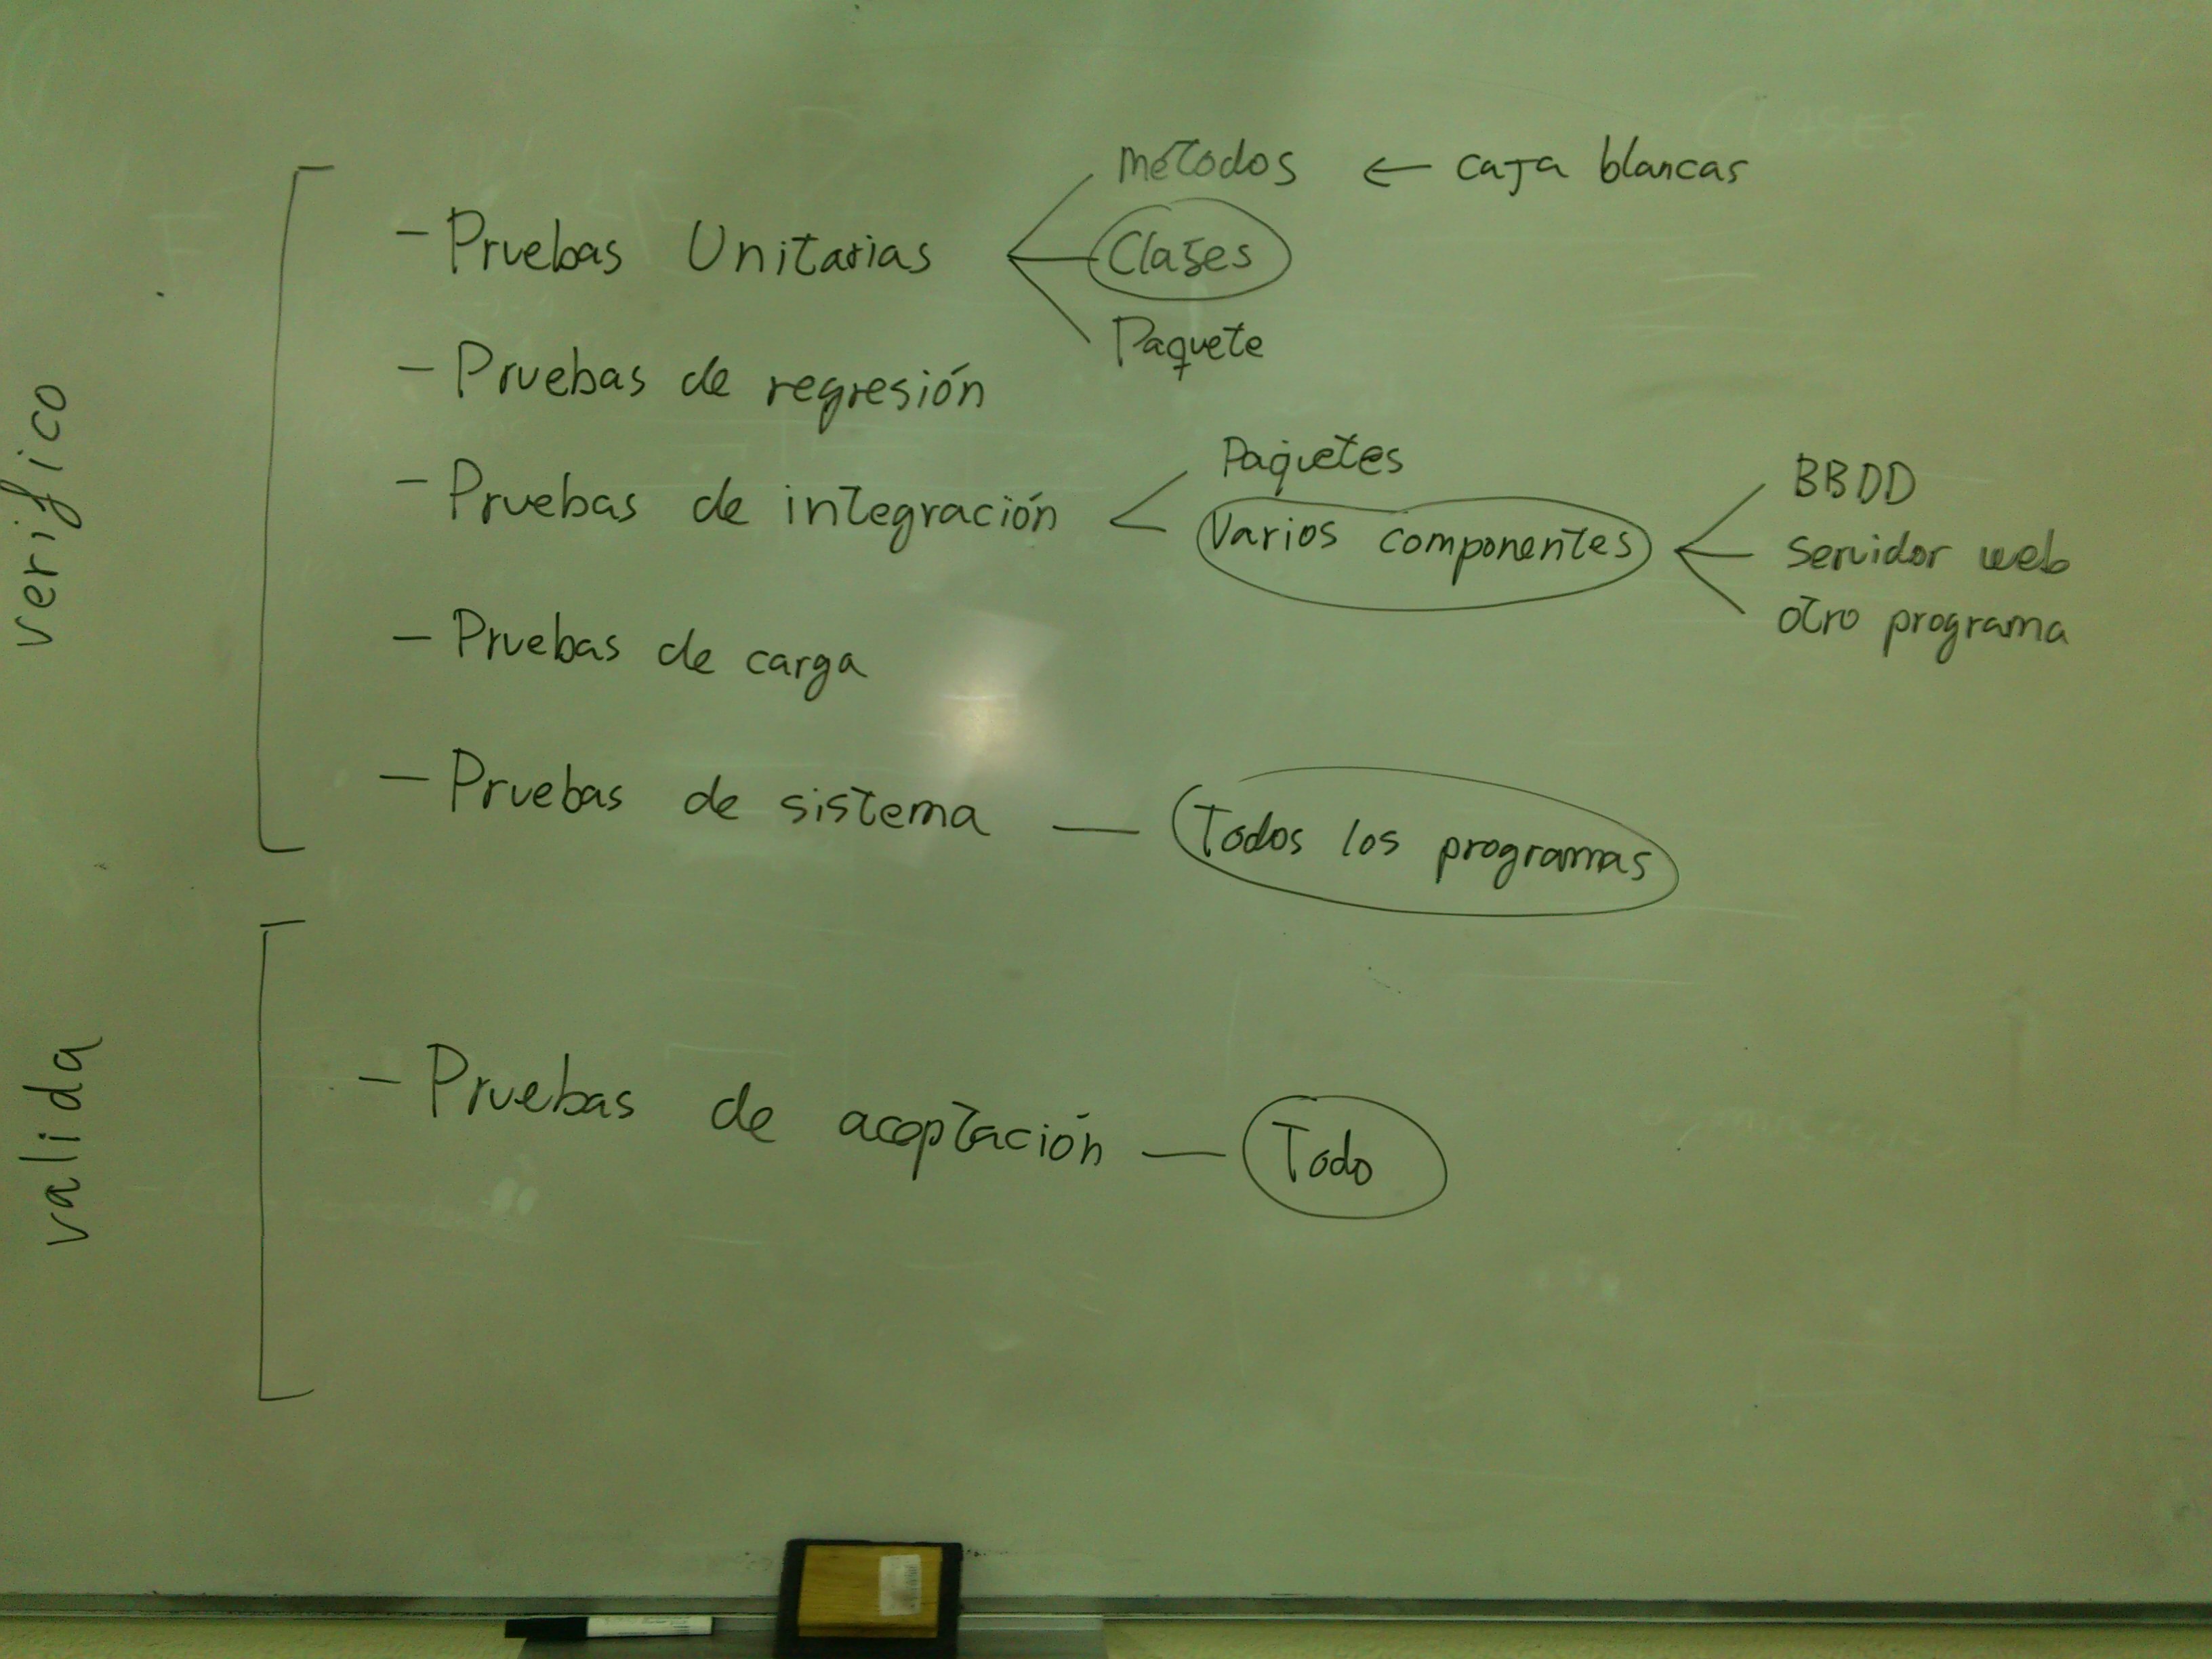 verifico
- Pruebas Unitarias
métodos ← caja blancas
Clases
Paquete
- Pruebas de regresión
- Pruebas de integración
Paquetes
Varios componentes
BBDD
Servidor web
otro programa
- Pruebas de carga
- Pruebas de sistema — Todos los programas
valida
- Pruebas de aceptación — Todo
CLASES